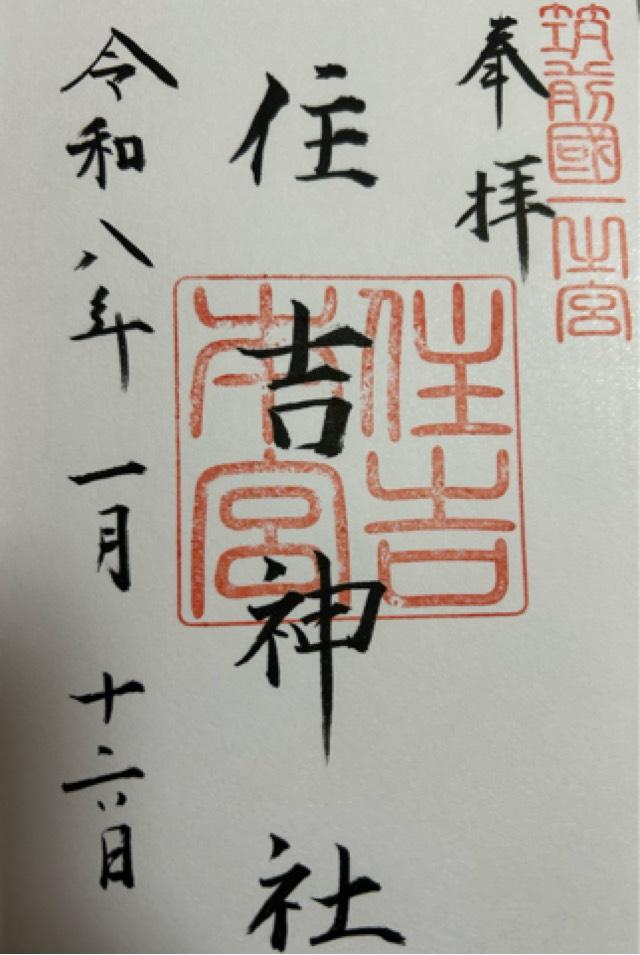 筑前國一之宮
奉拝
住吉神社
住吉
本宮
令和八年一月十六日